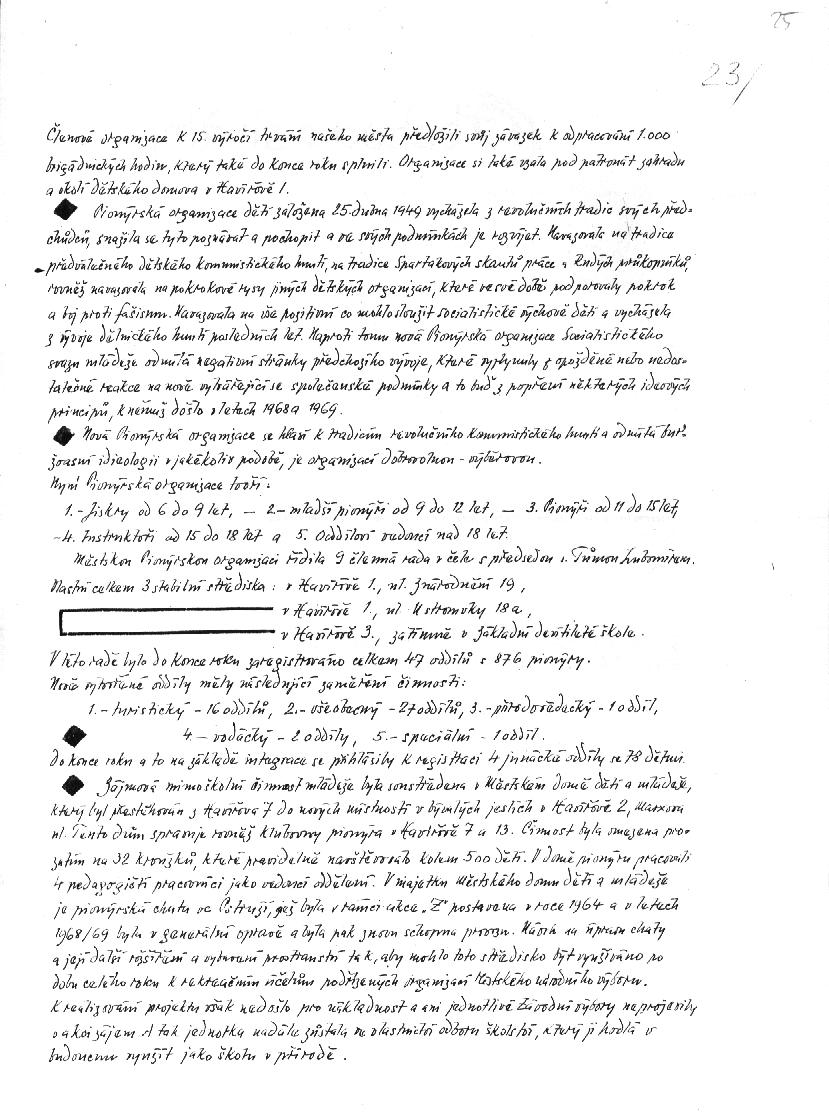 25
23/
Členové organizace k 15. výročí trvání našeho města předložili svůj závazek k odpracování 1.000
brigádnických hodin, který také do konce roku splnili. Organizace si také vzala pod patronát zahradu
a okolí dětského domova v Havířově 1.
Pionýrská organizace dětí založena 25. dubna 1949 vycházela z revolučních tradic svých před-
chůdců, snažila se tyto poznávat a pochopit a ve svých podmínkách je rozvíjet. Navazovala na tradice
předválečného dětského komunistického hnutí, na tradice Spartakových skautů práce a Rudých průkopníků,
rovněž navazovala na pokrokové rysy jiných dětských organizací, které ve své době podporovaly pokrok
a boj proti fašismu. Navazovala na vše pozitivní co mohlo sloužit socialistické výchově dětí a vycházela
z vývoje dělnického hnutí posledních let. Naproti tomu nová Pionýrská organizace Socialistického
svazu mládeže odmítá negativní stránky předchozího vývoje, které vyplynuly z opožděné nebo nedos-
tatečné reakce na nově vytvářející se společenské podmínky a to buď z popření některých ideových
principů, k němuž došlo v letech 1968 a 1969.
Nová Pionýrská organizace se hlásí k tradicím revolučního komunistického hnutí a odmítá bur-
žoasní idiologii v jakékoliv podobě, je organizací dobrovolnou - výběrovou.
Nyní Pionýrskou organizace tvoří:
1.- Jiskry od 6 do 9 let, — 2.- mladší pionýři od 9 do 12 let, — 3. Pionýři od 11 do 15 let,
-4. Instruktoři od 15 do 18 let a 5. Oddíloví vedoucí nad 18 let.
Městskou Pionýrskou organizaci řídila 9 členná rada v čele s předsedou s. Tůmou Lubomírem.
Vlastní celkem 3 stabilní střediska: v Havířově 1., ul. Znárodnění 19,
v Havířově 1., ul U stromovky 18a,
v Havířově 3., zatímně v Základní devítileté škole.
V této radě bylo do konce roku zaregistrováno celkem 47 oddílů s 876 pionýry.
Nově vytvořené oddíly měly následující zaměření činnosti:
1.- turistický - 16 oddílů, 2.- všeobecný - 27 oddílů, 3.- přírodovědecký - 1 oddíl,
4.- vodácký - 2 oddíly, 5.- speciální - 1 oddíl.
do konce roku a to na základě integrace se přihlásily k registraci 4 junácké oddíly se 78 dětmi.
Zájmová mimoškolní činnost mládeže byla soustředěna v Městském domě dětí a mládeže,
který byl přestěhován z Havířova 7 do nových místností v bývalých jeslích v Havířově 2, Marxova
ul. Tento dům spravuje rovněž klubovny pionýra v Havířově 7 a 13. Činnost byla omezena pro-
zatím na 32 kroužků, které pravidelně navštěvovalo kolem 500 dětí. V domě pionýrů pracovali
4 pedagogičtí pracovníci jako vedoucí oddělení. V majetku Městského domu dětí a mládeže
je pionýrská chata ve Pstruží, jež byla v rámci akce „Z" postavena v roce 1964 a v letech
1968/69 byla v generální opravě a byla pak znovu schopna provozu. Návrh na úpravu chaty
a její další rozšíření a vybavení prostranství tak, aby mohlo toto středisko být využíváno po
dobu celého roku k rekreačním účelům podřízených organizací Městského národního výboru.
K realizování projektu však nedošlo pro nákladnost a ani jednotlivé Závodní výbory neprojevily
o akci zájem. A tak jednotka nadále zůstala ve vlastnictví odboru školství, který ji hodlá v
budoucnu využít jako školu v přírodě.